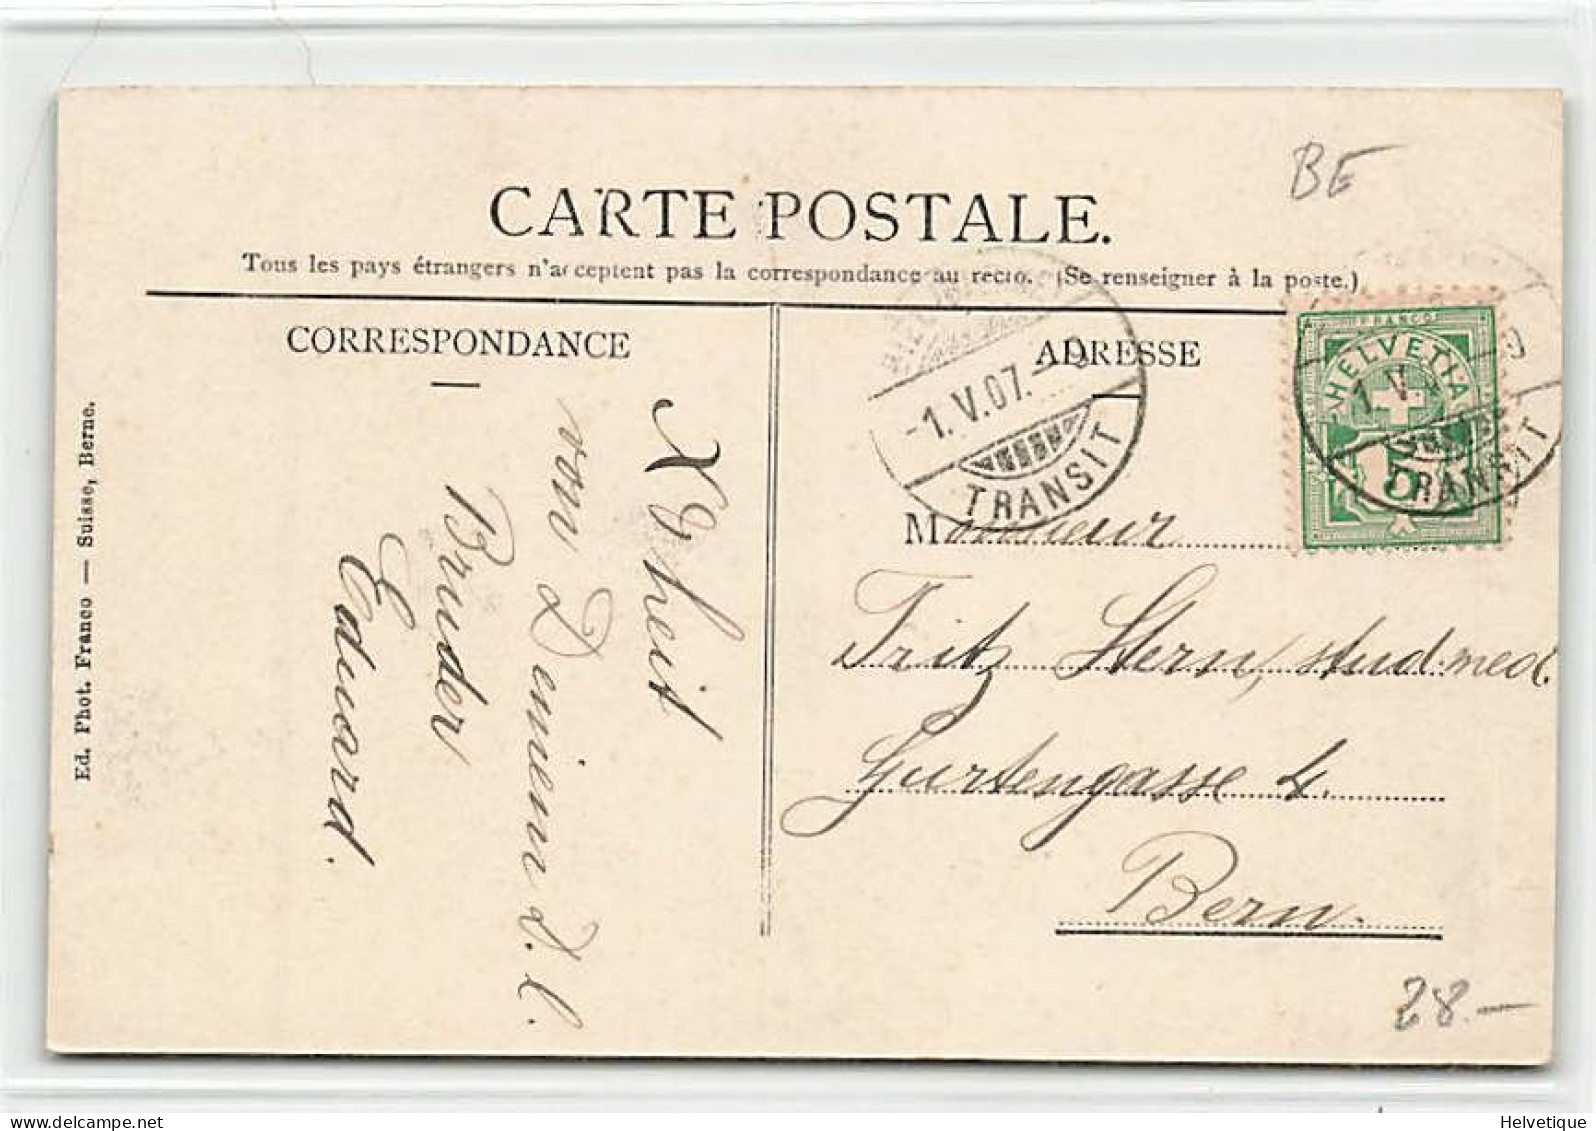 BE
CARTE POSTALE.
Tous les pays étrangers n'acceptent pas la correspondance au recto. (Se renseigner à la poste.)
CORRESPONDANCE
ADRESSE
Ed. Phot. Franco — Suisse, Berne.
von Deinem d. l.
Bruder
Eduard.
-1.V.07.-9
TRANSIT
FRANCO
HELVETIA
5
1.V
-9
TRANSIT
Monsieur
Fritz Stern, stud. med.
Gurtengasse 4.
Bern.
28.-
Helvetique